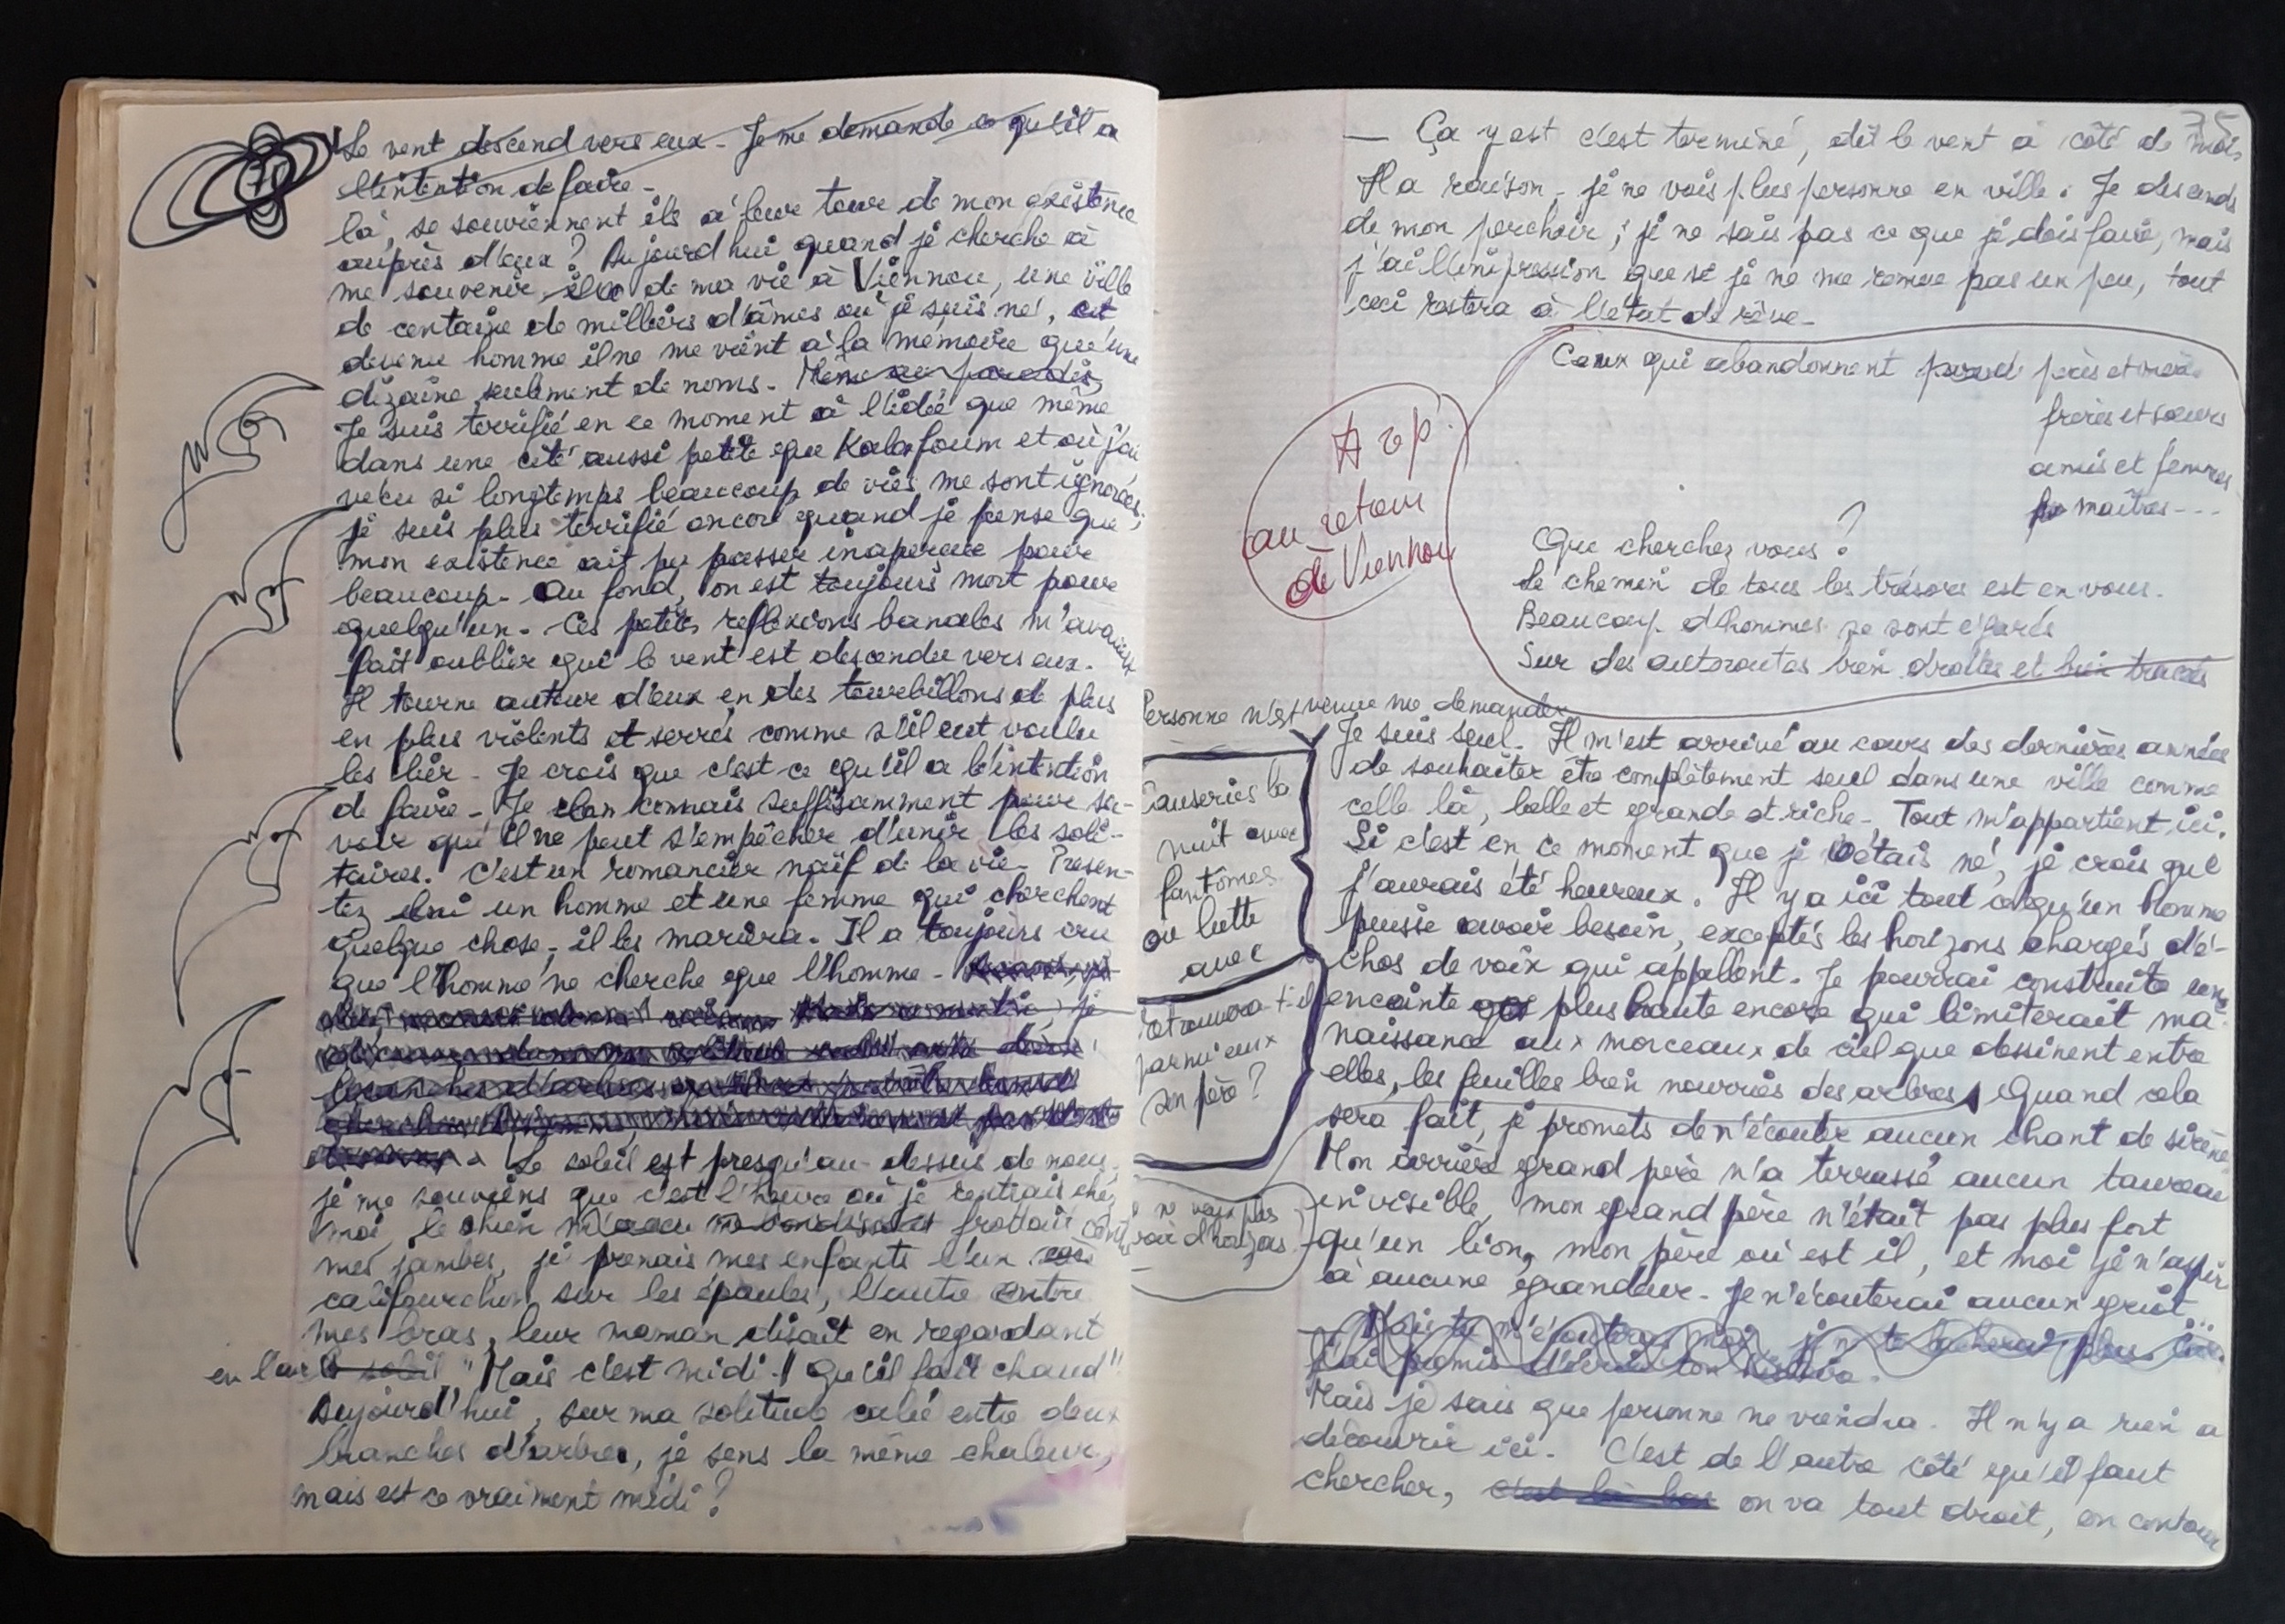 Le vent descend vers eux. Je me demande ce qu'il a
l'intention de faire.
là, se souviennent ils à leur tour de mon existence
auprès d'eux ? Aujourd'hui quand je cherche à
me souvenir de ma vie à Viennou, une ville
de centaine de milliers d'âmes où je suis né, et
devenu homme il ne me vient à la mémoire qu'une
dizaine seulement de noms. Même au paradis
Je suis terrifié en ce moment à l'idée que même
dans une cité aussi petite que Kalafoum et où j'ai
vécu si longtemps beaucoup de vies me sont ignorées ;
je suis plus terrifié encore quand je pense que
mon existence ait pu passer inaperçue pour
beaucoup. Au fond, on est toujours mort pour
quelqu'un. Ces petites réflexions banales m'avaient
fait oublier que le vent est descendu vers eux.
Il tourne autour d'eux en des tourbillons de plus
en plus violents et serrés comme s'il eut voulu
les lier. Je crois que c'est ce qu'il a l'intention
de faire. Je connais suffisamment pour sa-
voir qu'il ne peut s'empêcher d'unir les soli-
taires. C'est un romancier naïf de la vie. Présen-
tez lui un homme et une femme qui cherchent
quelque chose, il les mariera. Il a toujours cru
que l'homme ne cherche que l'homme.
Le soleil est presqu'au-dessus de nous,
je me souviens que c'est l'heure où je rentrais chez
moi, le chien frottait contre
mes jambes, je prenais mes enfants l'un
califourchon sur les épaules, l'autre entre
mes bras, leur maman disait en regardant
en l'air le soleil "Mais c'est midi ! Qu'il fait chaud"
Aujourd'hui, sur ma solitude calée entre deux
branches d'arbres, je sens la même chaleur,
mais est ce vraiment midi ?
35
— Ça y est c'est terminé, dit le vent à côté de moi.
Il a raison, je ne vois plus personne en ville. Je descends
de mon perchoir ; je ne sais pas ce que je dois faire, mais
j'ai l'impression que si je ne me remue pas un peu, tout
ceci restera à l'état de rêve.
Ceux qui abandonnent pères et mères
frères et sœurs
amis et femmes
maîtres...
A rep.
au retour
de Viennou
Que cherchez vous ?
Le chemin de tous les trésors est en vous.
Beaucoup d'hommes se sont égarés
Sur des autoroutes bien droites et bien tracées
Personne n'est venue me demander
Causeries la
nuit avec
fantômes
ou lutte
avec
retrouvera t-il
parmi eux
son père ?
ne veux pas
Je suis seul. Il m'est arrivé au cours des dernières années
de souhaiter être complètement seul dans une ville comme
celle là, belle et grande et riche. Tout m'appartient ici.
Si c'est en ce moment que j'étais né, je crois que
j'aurais été heureux. Il y a ici tout ce qu'un homme
puisse avoir besoin, exceptés les horizons chargés d'é-
chos de voix qui appellent. Je pourrai construire une
enceinte plus haute encore qui limiterait ma
naissance aux morceaux de ciel que dessinent entre
elles, les feuilles bien nourries des arbres. Quand cela
sera fait, je promets de n'écouter aucun chant de sirène
Mon arrière grand père n'a terrassé aucun taureau
invisible, mon grand père n'était pas plus fort
qu'un lion, mon père où est il, et moi je n'aspire
à aucune grandeur. Je n'écouterai aucun griot...
— Mais tu m'écouteras moi, je ne te lâcherai plus.
J'ai promis d'écrire ton histoire.
Mais je sais que personne ne viendra. Il n'y a rien à
découvrir ici. C'est de l'autre côté qu'il faut
chercher, c'est là bas on va tout droit, on contourne